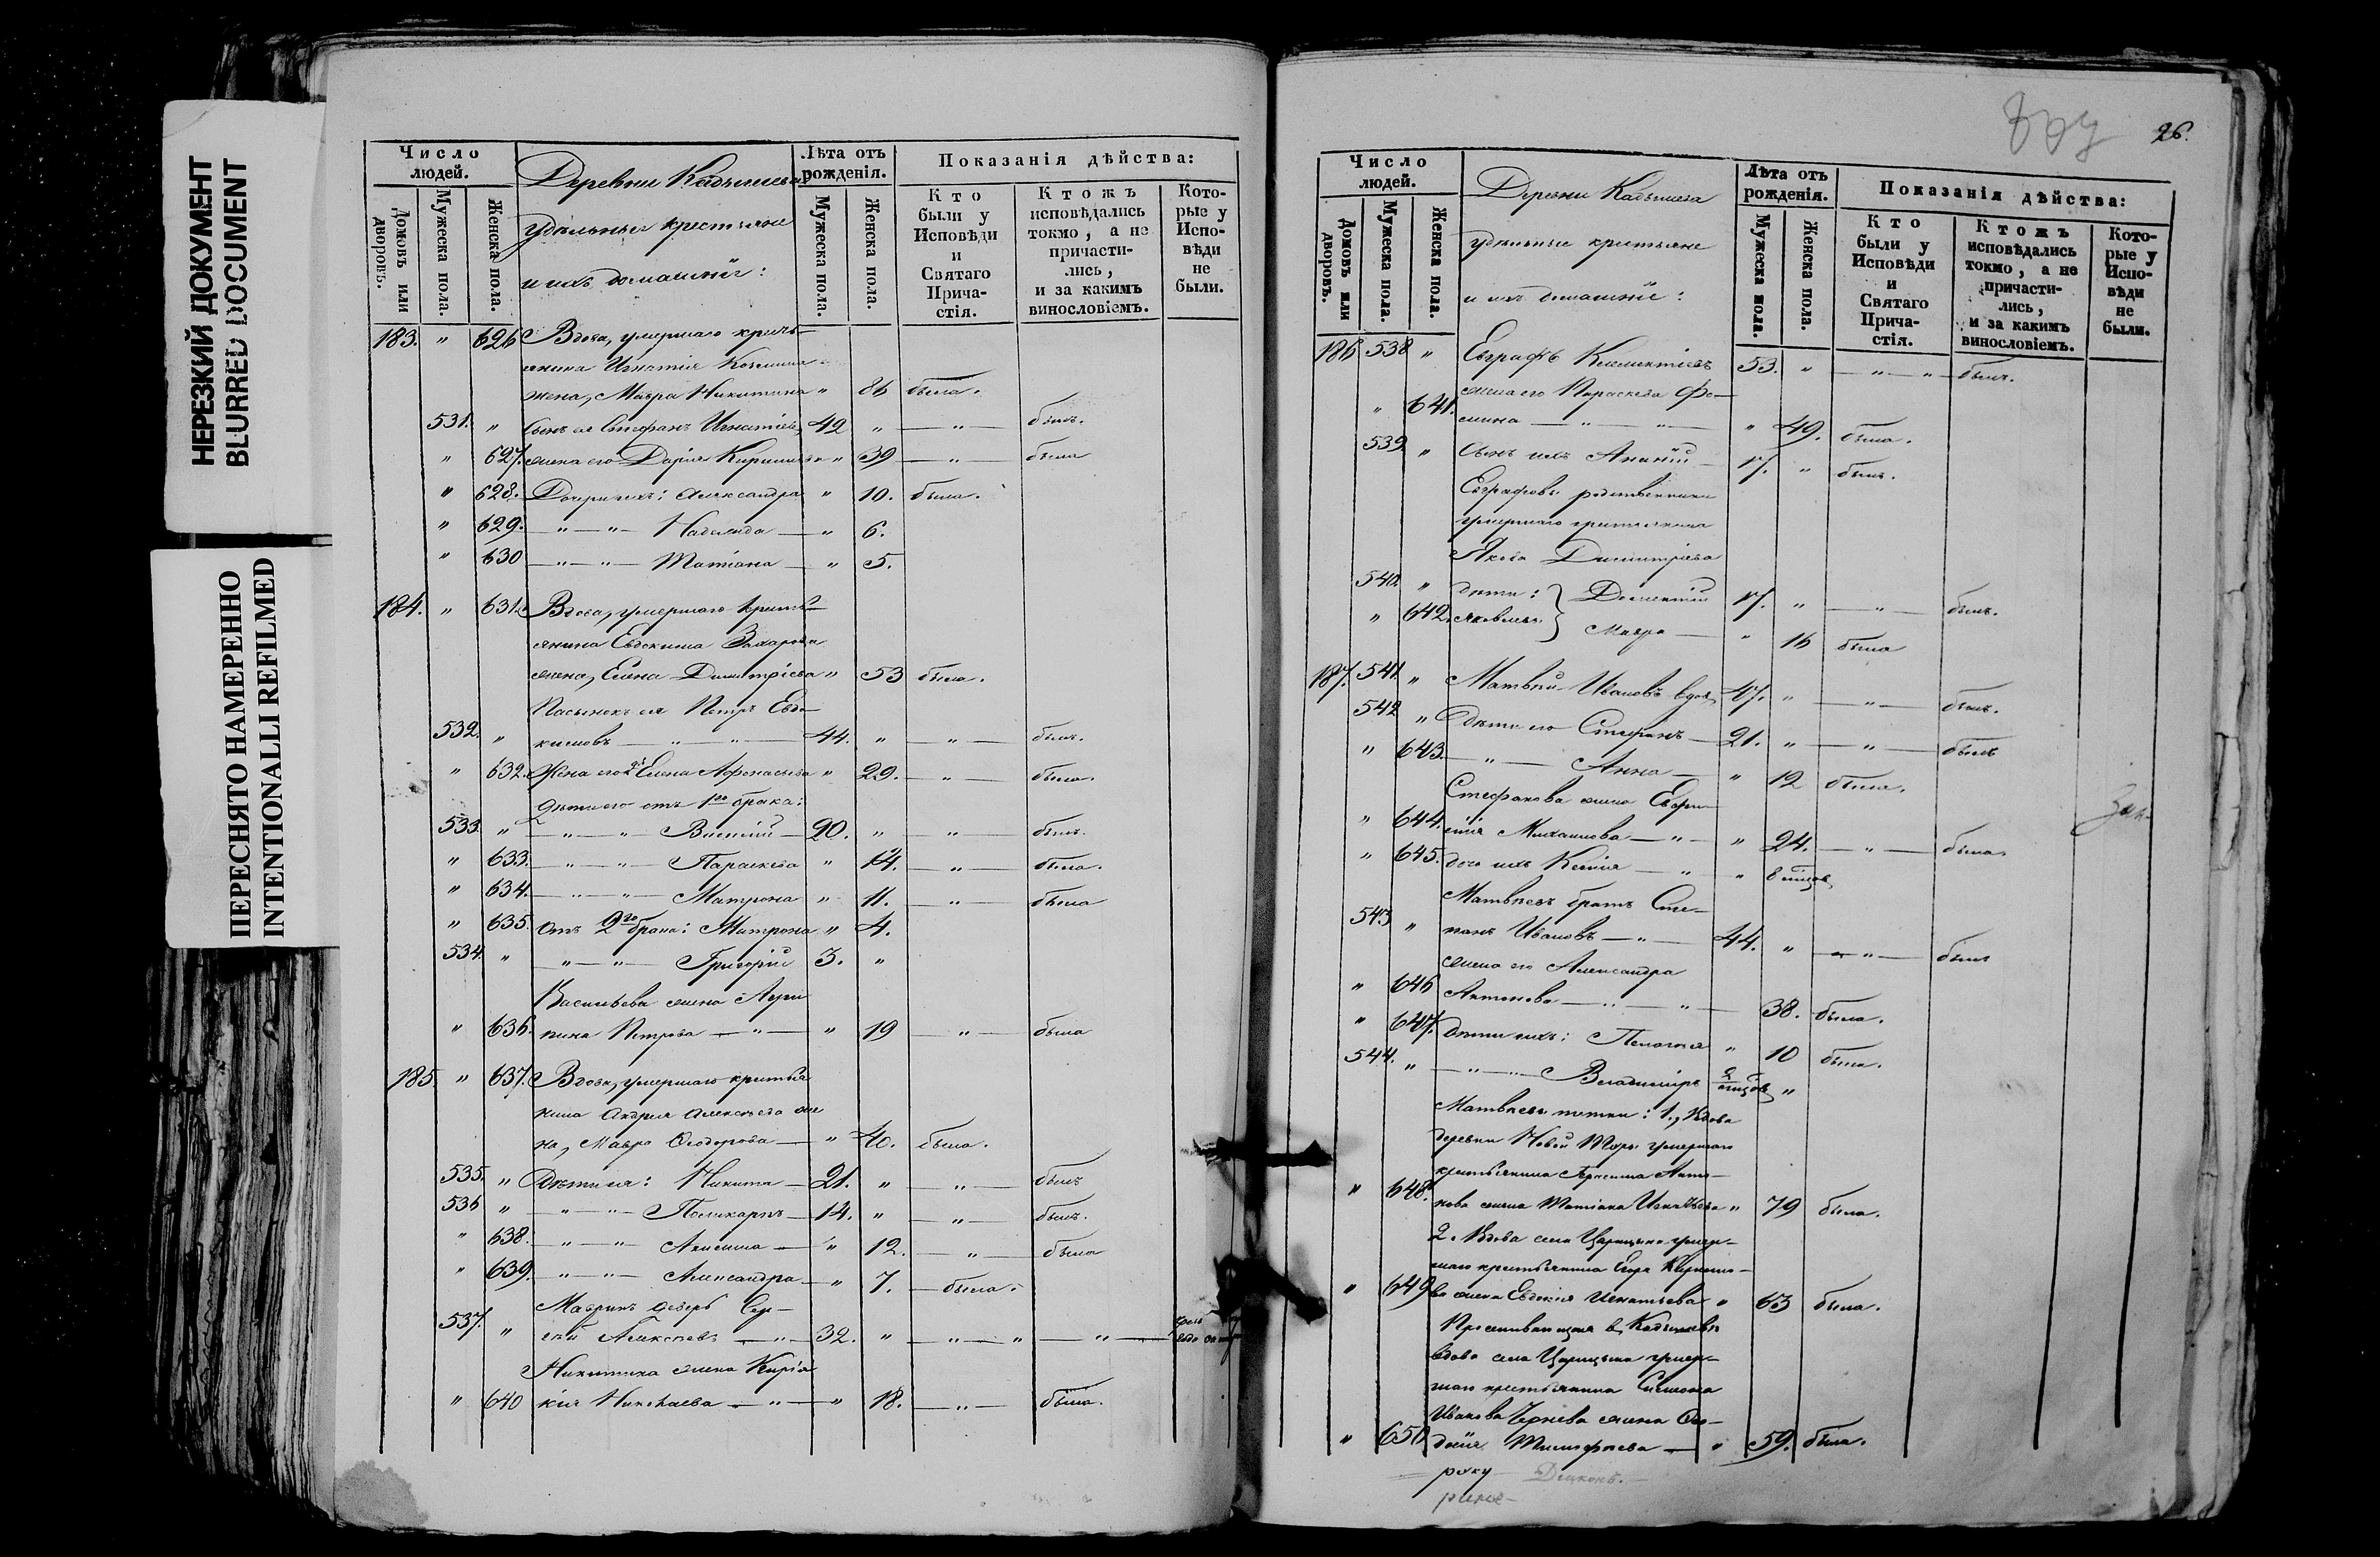 НЕРЕЗКИЙ ДОКУМЕНТ
BLURRED DOCUMENT
ПЕРЕСНЯТО НАМЕРЕННО
INTENTIONALLI REFILMED
Число людей. Деревни Кадышева Лѣта отъ рожденія. Показанія дѣйства:
удѣльные крестьяне
и ихъ домашніе:
Домовъ или дворовъ. Мужеска пола. Женска пола. Мужеска пола. Женска пола. Кто были у Исповѣди и Святаго Прича-стія. Ктожъ исповѣдались токмо, а не причасти-лись, и за какимъ винословіемъ. Кото-рые у Испо-вѣди не были.
183. " 626 Вдова, умершаго кресть-
янина Игнатія Козмина
жена, Мавра Никитина " 86 была.
531. " Сынъ ея Стефанъ Игнатіевъ 42 " — " — былъ.
" 627. жена его Дарія " 39 — " — была
" 628. Дочери ихъ: Александра " 10. была.
" 629. — " — " — Надежда — " 6.
" 630 — " — " — Татіана — " 5.
184. " 631. Вдова, умершаго кресть-
янина Евдокима Захарова
жена, Елена Димитріева " 53 была.
Пасынокъ ея Петръ Евдо-
532. " кимовъ — " — " — 44. " — " — былъ.
" 632. Жена его 2я Елена Афонасьева " 29. — " — была.
Дѣти его отъ 1го брака:
533. " — " — " — Василій — 20. " " — былъ.
" 633. — " — " — Параскева " 14. — " — была.
" 634. — " — " — Матрона " 11. — " — была
" 635. отъ 2го брака: Матрона " 4.
534. " — " — " — Григорій 3. "
Васильева жена Агри-
" 636. пина Петрова — " — " 19 — " — была
185 " 637. Вдова, умершаго крестья
нина Андрея Алексѣева же
на, Мавра Ѳеодорова — " 40. была.
535. " Дѣти ея: Никита — 21. " — " — былъ
536 " — " — " — Поликарпъ — 14. " — " — былъ.
" 638. — " — " — Акилина — " 12. — " — была
" 639. — " — " — Александра — " 7. — была.
Маврина деверь Сер-
537. " гѣй Алексѣевъ — " — 32. " — " — " — " —
Никитина жена Кирія
" 640 кія Николаева — " — " 18. — " — была.
26.
Число людей. Деревни Кадышева Лѣта отъ рожденія. Показанія дѣйства:
удѣльные крестьяне
и ихъ домашніе:
Домовъ или дворовъ. Мужеска пола. Женска пола. Мужеска пола. Женска пола. Кто были у Исповѣди и Святаго Прича-стія. Ктожъ исповѣдались токмо, а не причасти-лись, и за какимъ винословіемъ. Кото-рые у Испо-вѣди не были.
186 538 " Евграфъ Климентіевъ 53. " — " — " — былъ.
жена его Параскева Фо-
" 641. мина — " — " — " 49. была.
539. " Сынъ ихъ Ананій — 17. " былъ.
Евграфовы родственники
умершаго крестьянина
Якова Димитріева
540. " дѣти: Дементій 17. " — " — былъ.
" 642. Яковлевы Мавра — " 16 была
187. 541. " Матвѣй Ивановъ вдов. 47. " — " — былъ.
542 " Дѣти его Стефанъ — 21. " — " — былъ
" 643. — " — Анна — " 12 была.
Стефанова жена Евфи-
" 644. мія Михаилова — " — " 24. — " — была.
" 645. дочь ихъ Ксенія — " " 8 мцов.
Матвѣевъ братъ Сте-
543 " панъ Ивановъ — " — 44. " — " — былъ
жена его Александра
" 646 Антонова — " — " — 38. была.
" 647. Дѣти ихъ: Пелагея " 10 была.
544. " — " — " — Владиміръ мцов. "
Матвѣевы тетки: 1., Вдова
деревни Новой умершаго
крестьянина Герасима Анто-
" 648. нова жена Татіана Игнатьева " 79 была.
2. Вдова села Царицына умер-
шаго крестьянина Егора
" 649 ва жена Евдокія Игнатьева " 63 была.
Проживающая в Кадышевѣ
вдова села Царицына умер-
шаго крестьянина Симеона
Иванова жена Ѳео-
" 650. досія Тимофеева — " 59. была.